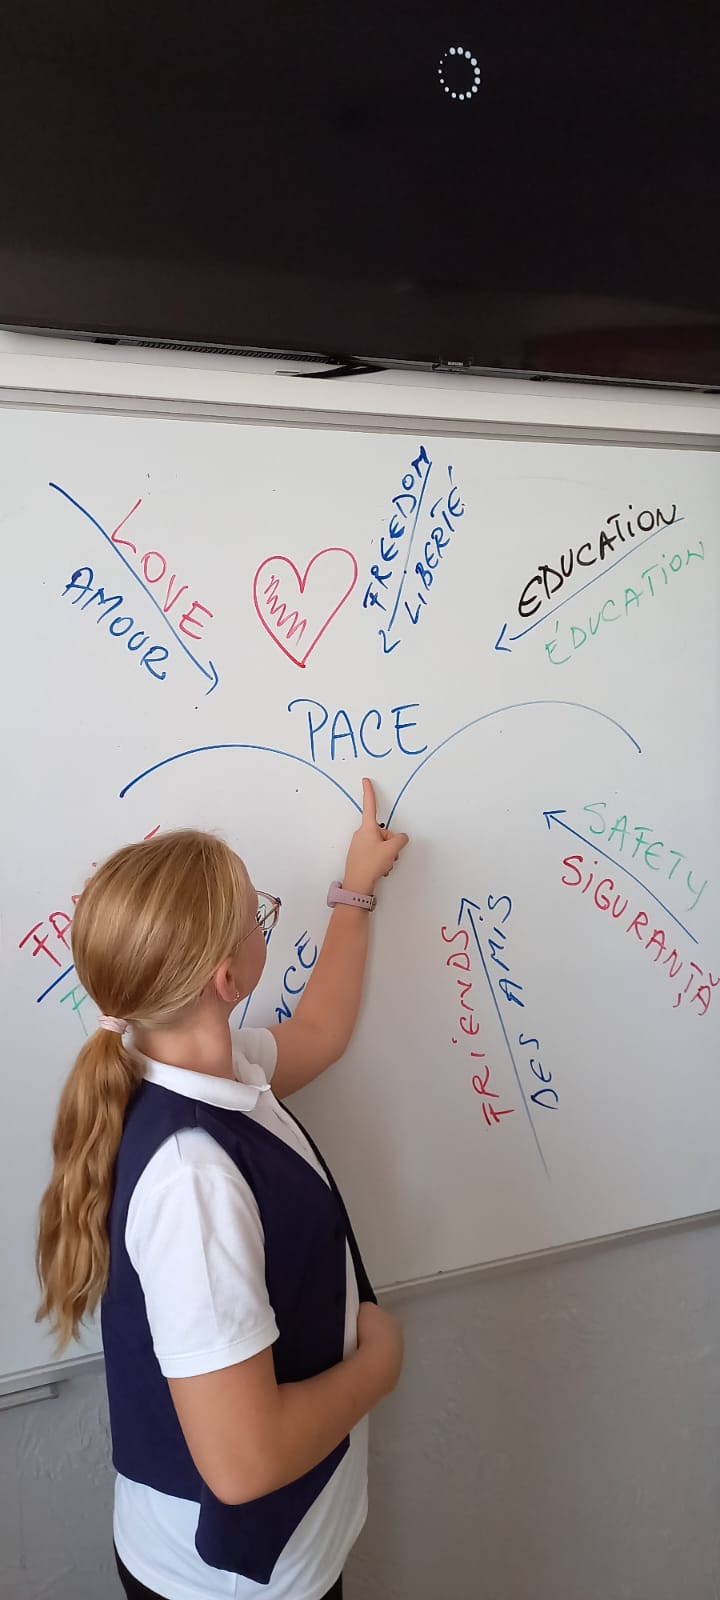 LOVE
AMOUR
FREEDOM
LIBERTÉ
EDUCATION
ÉDUCATION
PACE
SAFETY
SIGURANȚĂ
FRIENDS
DES AMIS